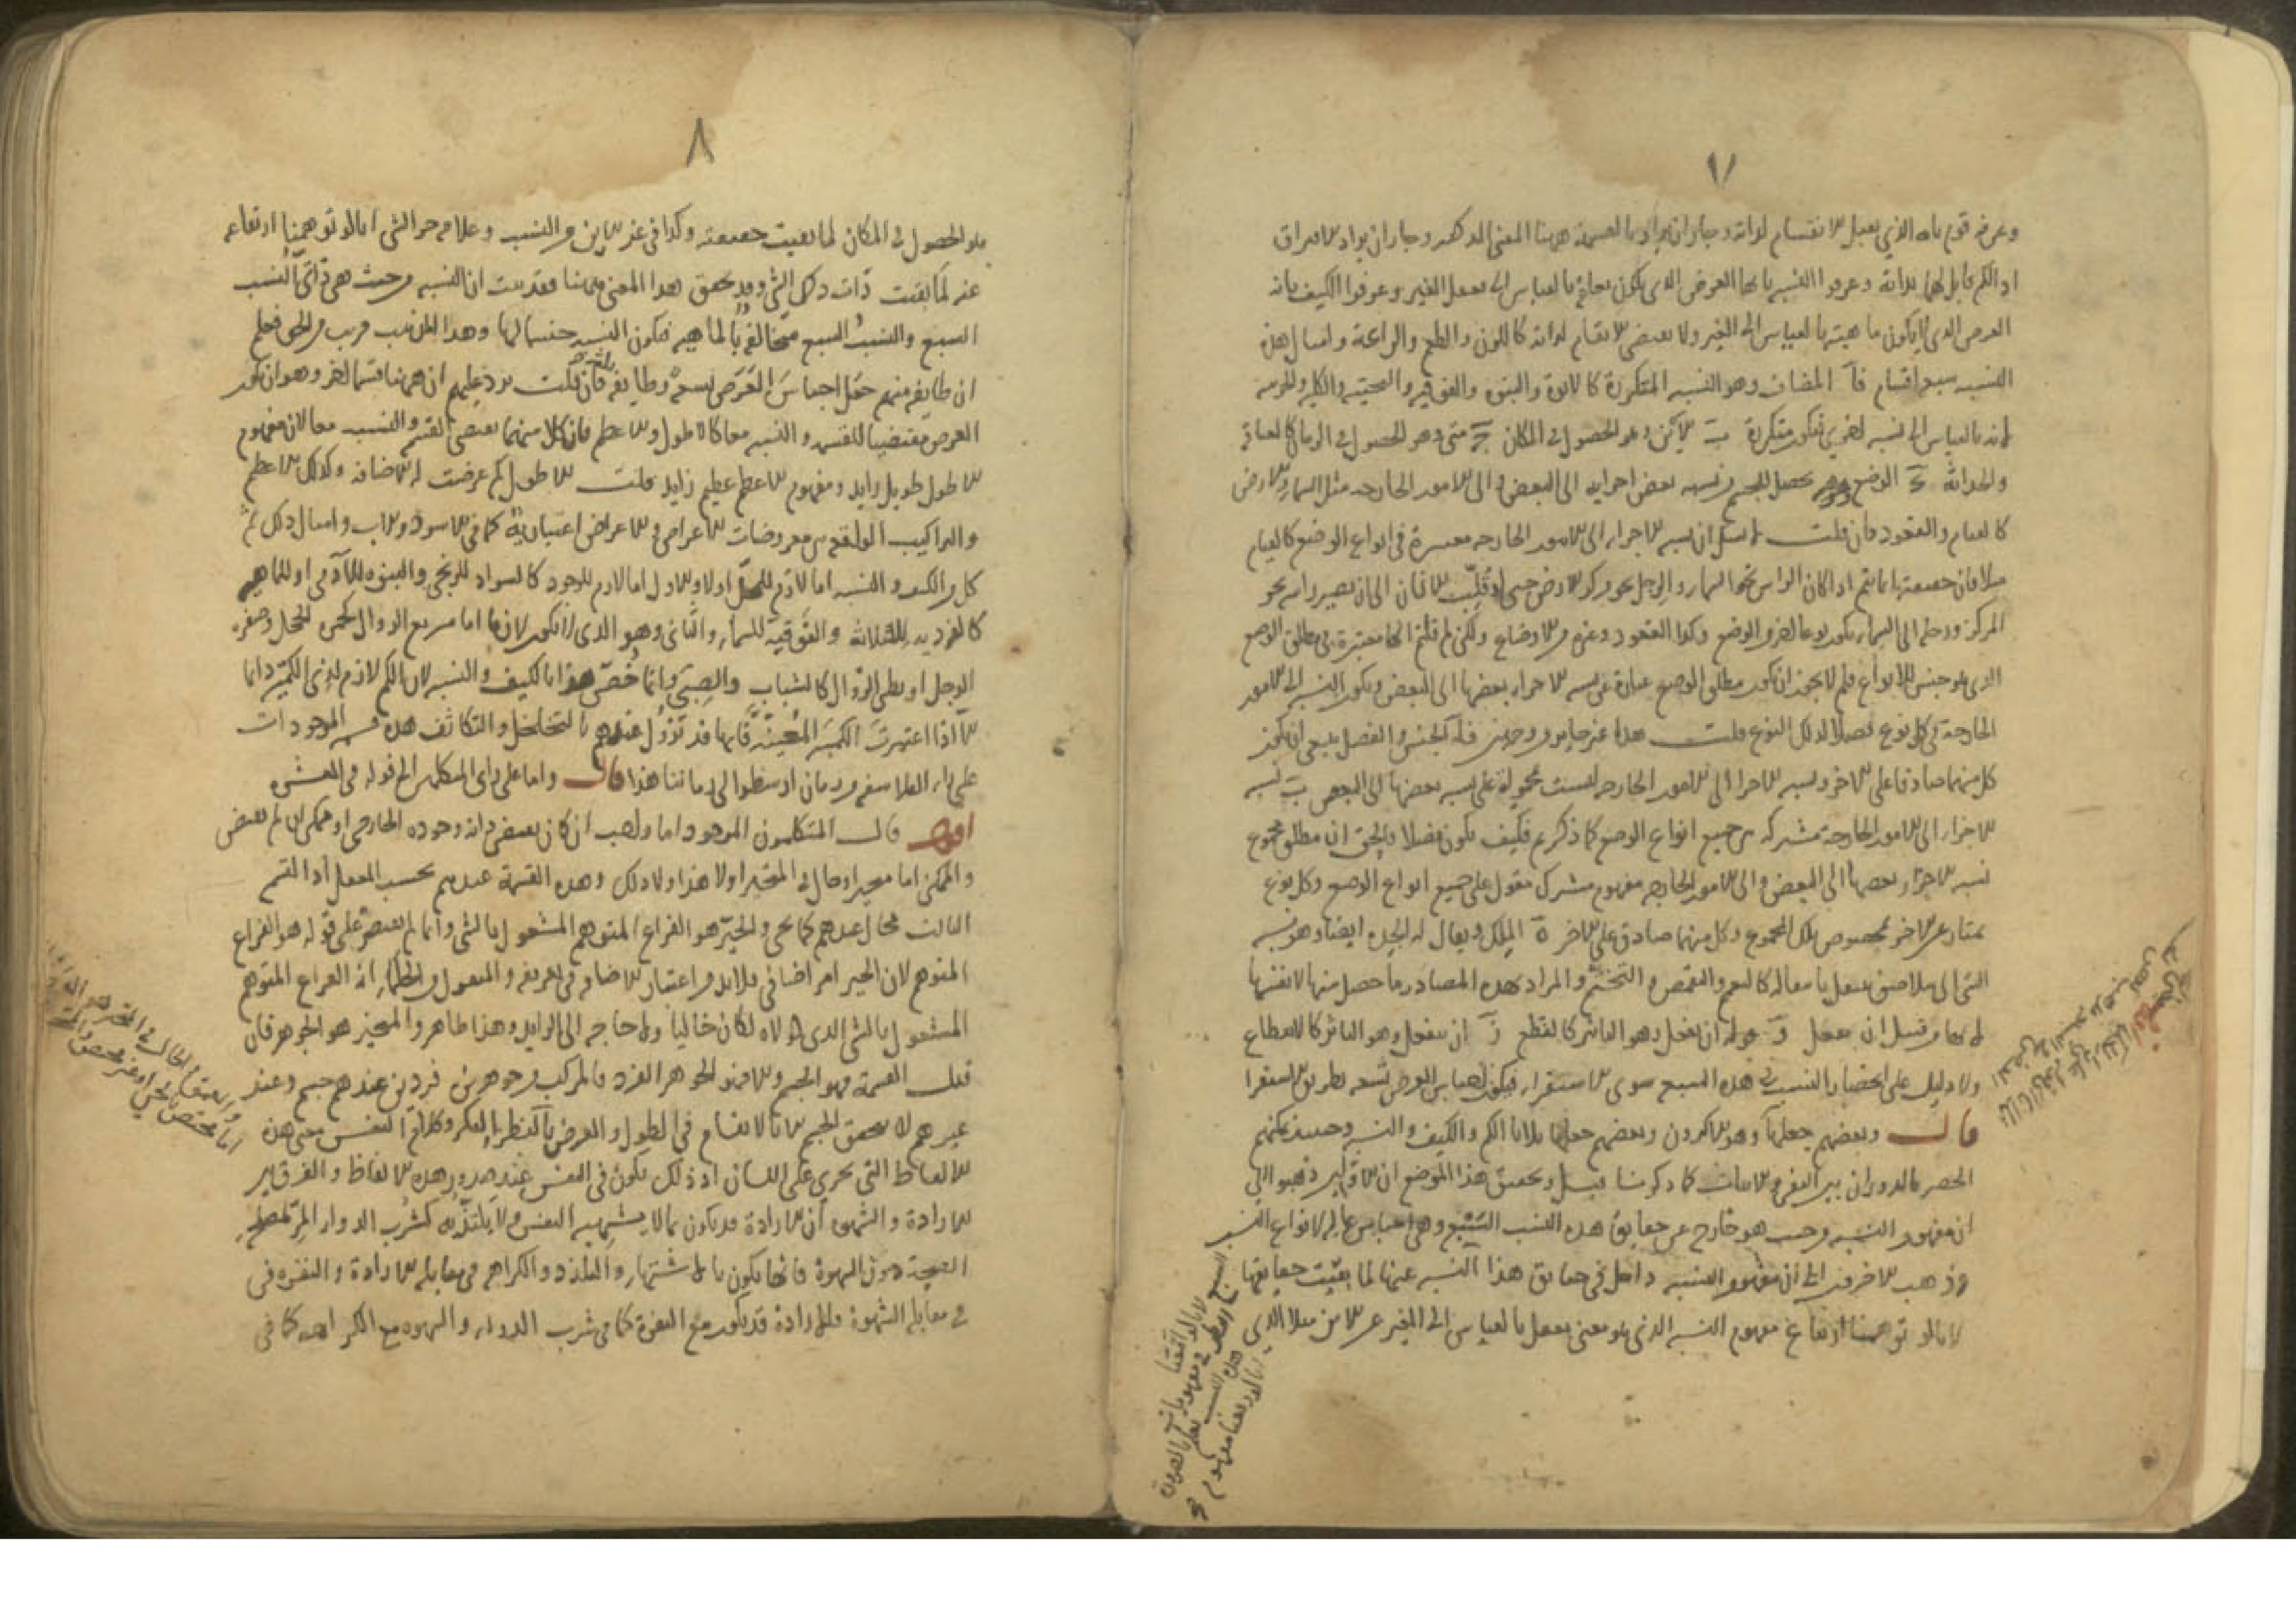 ٧
وعرفه قوم بانه الذي يقبل الانقسام لذاته وجاز ان يراد بالقسمة ههنا المعنى المذكور وجاز ان يراد الافتراق
اذ الكم قابل لهما بذاته وعرفوا النسبة بانها العرض الذي يكون بحاله بالقياس الى الغير وعرفوا الكيف بانه
العرض الذي لا يكون ماهيته بالقياس الى الغير ولا يقتضي الانقسام لذاته كاللون والطعم والرائحة وامثال هذه
النسبة سبعة اقسام آ المضاف وهو النسبة المتكررة كالابوة والبنوة والفوقية والتحتية والكلية والجزئية
فانه بالقياس الى نسبة اخرى فتكون متكررة ب الاين وهو الحصول في المكان ج متى وهو الحصول في الزمان كالعتاقة
والحداثة د الوضع وهو يحصل للجسم من نسبة بعض اجزائه الى البعض والى الامور الخارجة مثل السماء والارض
كالقيام والقعود فان قلت لا نسلم ان نسبة الاجزاء الى الامور الخارجة معتبرة في انواع الوضع كالقيام
مثلا فان حقيقته انما يتم اذا كان الراس نحو السماء والرجل نحو مركز الارض حتى لو قلبت الانسان الى ان يصير راسه نحو
المركز ورجله الى السماء يكون نوعا اخر من الوضع وكذا القعود وغيره من الاوضاع ولكن لم قلتم انها معتبرة في مطلق الوضع
الذي هو جنس للانواع فلم لا يجوز ان يكون مطلق الوضع عبارة عن نسبة الاجزاء بعضها الى البعض ويكون النسبة الى الامور
الخارجة في كل نوع فصلا لذلك النوع قلت هذا غير جايز من وجهين آ الجنس والفصل ينبغي ان يكون
كل منهما صادقا على الاخر ونسبة الاجزاء الى الامور الخارجة ليست محمولة على نسبة بعضها الى البعض ب نسبة
الاجزاء الى الامور الخارجة مشتركة بين جميع انواع الوضع كما ذكرتم فكيف يكون فصلا والحق ان مطلق مجموع
نسبة الاجزاء بعضها الى البعض والى الامور الخارجة مفهوم مشترك مقول على جميع انواع الوضع وكل نوع
يمتاز عن الاخر بخصوص تلك المجموع وكل منهما صادق على الاخر ه الملك ويقال له الجدة ايضا وهو نسبة
الشي الى ملاصق ينتقل بانتقاله كالتعمم والتقمص والتختم والمراد بهذه المصادر ما حصل منها لا نفسها
لانها من قبيل ان يفعل و قوله ان يفعل وهو التاثير كالقطع ز ان ينفعل وهو التاثر كالانقطاع
ولا دليل على انحصار النسب في هذه السبع سوى الاستقراء فيكون اجناس العرض تسعة بطريق الاستقراء
قال وبعضهم جعلها وهو الاكثرون وبعضهم جعلها ثلاثا الكم والكيف والنسبة وحينئذ يمكنهم
الحصر بالدوران بين النفي والاثبات كما ذكرنا قبيل وتحقيق هذا الموضع ان الاولين ذهبوا الى
ان مفهوم النسبة من حيث هو خارج عن حقايق هذه النسب السبع وهي اجناس عالية لانواع النسب
وذهب الاخرون الى ان مفهوم النسبة داخل في حقايق هذا النسبة عينها لما بقيت حقايقها
لانا لو توهمنا ارتفاع مفهوم النسبة الذي هو معنى يعقل بالقياس الى الغير عن الاين مثلا الذي
٨
هو الحصول في المكان لما بقيت حقيقته وكذا في غير الاين من النسب وعلامة جزء الشي انا لو توهمنا ارتفاعه
عنه لما بقيت ذات ذلك الشي وقد تحقق هذا المعنى ههنا فقد ثبت ان النسبة من حيث هي ذاتي النسب
السبع والنسب السبع متخالفة بالماهية فتكون النسبة جنسا لها وهذا المذهب قريب من الحق فعلم
ان طايفة منهم جعل اجناس العرض تسعة وطايفة ثلثة فان قلت يرد عليهم ان ههنا قسما اخر وهو ان يكون
العرض مقتضيا للقسمة والنسبة معا كالاطول والاعظم فان كلا منهما يقتضي القسمة والنسبة معا لان مفهوم
الاطول طويل زايد ومفهوم الاعظم عظيم زايد قلت الاطول كم عرضت له الاضافة وكذلك الاعظم
والتراكيب الواقعة بين معروضات الاعراض والاعراض اعتبارية كما في الاسود والاب وامثال ذلك ثم
كل من الكيف والنسبة اما لازم للمحل او لا والاول اما لازم للوجود كالسواد للزنجي والبنوة للآدمي او للماهية
كالفردية للثلاثة والفوقية للسماء والثاني وهو الذي لا يكون لازما اما سريع الزوال كحمرة الخجل وصفرة
الوجل او بطي الزوال كالشباب والصبى وانما خص هذا بالكيف والنسبة لان الكم لازم لذي الكمية دائما
الا اذا اعتبرت الكمية المعينة فانها قد تزول عندهم بالتخلخل والتكاثف هذه قسمة الموجودات
على راي الفلاسفة من زمان ارسطو الى زماننا هذا قال واما على راي المتكلمين الى قوله في العشرة
اقول قال المتكلمون الموجود اما واجب ان كان يقتضي ذاته وجوده الخارجي او ممكن ان لم يقتض
والممكن اما متحيز او حال في المتحيز او لا هذا ولا ذلك وهذه القسمة عندهم بحسب العقل اذ القسم
الثالث محال عندهم كما يجي والحيز هو الفراغ المتوهم المشغول بالشي وانما لم يقتصر على قوله هو الفراغ
المتوهم لان الحيز امر اضافي فلا بد من اعتبار الاضافة في تعريفه والمنقول من الحكماء انه الفراغ المتوهم
المشغول بالشي الذي لولاه لكان خاليا ولا حاجة الى الزايد وهذا ظاهر والمتحيز هو الجوهر فان
قبل القسمة فهو الجسم والا فهو الجوهر الفرد فالمركب من جوهرين فردين عندهم جسم وعند
غيرهم لا يتحقق الجسم الا بالانقسام في الطول والعرض بالنظر الفكر وكلام النفس معنى هذه
الالفاظ التي تجري على اللسان اذ ذلك يكون في النفس عند صدور هذه الالفاظ والفرق بين
الارادة والشهوة ان الارادة قد يكون بما لا يشتهيه النفس ولا يلتذ به كشرب الدواء المر لمصلحة
الصحة دون الشهوة فانها يكون بالاشتهاء والتلذذ والكراهة في مقابلة الارادة والنفرة في
في مقابلة الشهوة فالارادة قد يكون مع النفرة كما في شرب الدواء والشهوة مع الكراهة كما في